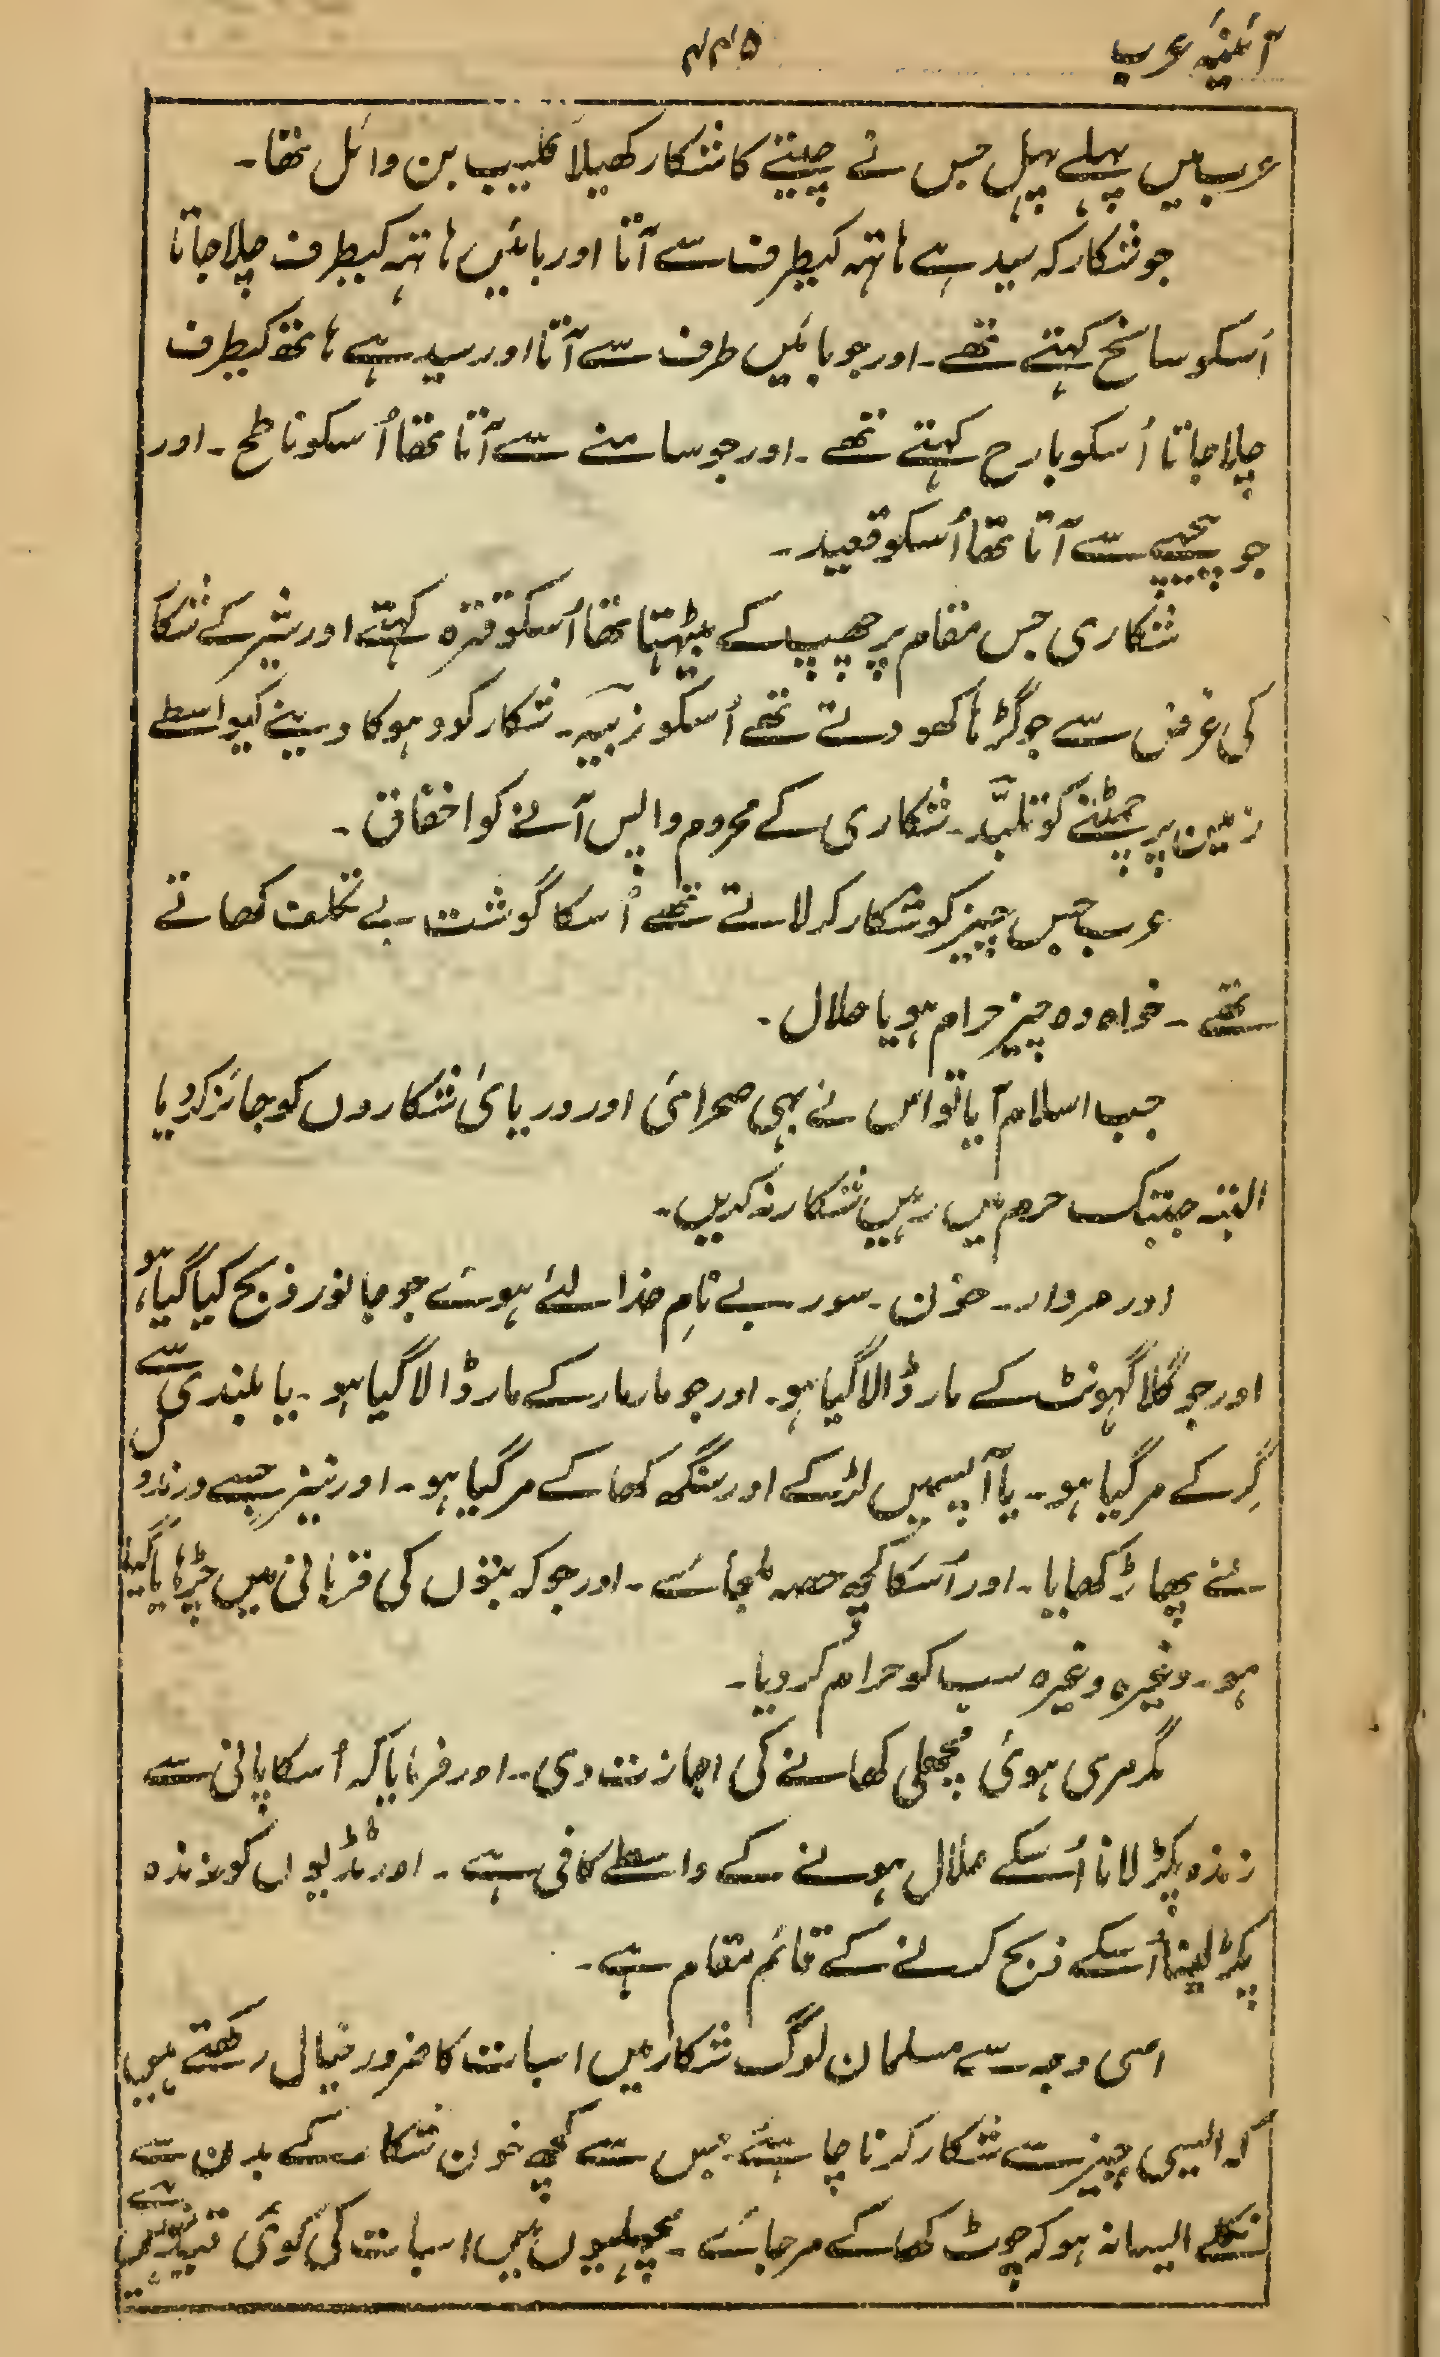 آئینۂ عرب
۴۴۵
عرب میں پہلے پہل جس نے چیتے کا شکار کھیلا کلیب بن وائل تھا۔
جو شکار کہ سیدہے ہاتہہ کیطرف سے آتا اور بائیں ہاتہہ کیطرف چلا جاتا
اُسکو سانح کہتے تھے۔ اور جو بائیں طرف سے آتا اور سیدہے ہاتھ کیطرف
چلا جاتا اُسکو بارح کہتے تھے۔ اور جو سامنے سے آتا تھا اُسکو ناطح۔ اور
جو پیچھے سے آتا تھا اُسکو قعید۔
شکاری جس مقام پر چھپ کے بیٹہتا تھا اُسکو قترہ کہتے اور شیر کے شکا
کی غرض سے جو گڑہا کھودتے تھے اُسکو زبیہ۔ شکار کو دہوکا دینے کیواسطے
زمین پر چمٹنے کو تلبّد۔ شکاری کے محروم واپس آنے کو اخفاق۔
عرب جس چیز کو شکار کر لاتے تھے اُسکا گوشت بے تکلف کھاتے
تھے۔ خواہ وہ چیز حرام ہو یا حلال۔
جب اسلام آیا تو اس نے بہی صحرائی اور دریائی شکاروں کو جائز کردیا
البتہ جبتک حرم میں رہیں شکار نہ کریں۔
اور مردار۔ خون۔ سور۔ بے نامِ خدا لئے ہوئے جو جانور ذبح کیا گیا ہو،
اور جو گلا گہونٹ کے مار ڈالا گیا ہو۔ اور جو مار مار کے مار ڈالا گیا ہو۔ یا بلندی سے
گِر کے مر گیا ہو۔ یا آپسمیں لڑ کے اور سنگھ کھا کے مر گیا ہو۔ اور نیز جسے درندوں
نے پھاڑ کھایا۔ اور اُسکا کچھ حصہ ملجائے۔ اور جو کہ بتوں کی قربانی میں چڑہایا گیا
ہو۔ وغیرہ وغیرہ سب کو حرام کردیا۔
مگر مری ہوئی مچھلی کھانے کی اجازت دی۔ اور فرمایا کہ اُسکا پانی سے
زندہ پکڑ لانا اُسکے حلال ہونے کے واسطے کافی ہے۔ اور ٹڈیوں کو زندہ
پکڑ لینا اُسکے ذبح کرنے کے قائم مقام ہے۔
اسی وجہ سے مسلمان لوگ شکار میں اسبات کا ضرور خیال رکھتے ہیں
کہ ایسی چیز سے شکار کرنا چاہئے جس سے کچھ خون شکار کے بدن سے
نکلے ایسا نہ ہو کہ چوٹ کھا کے مر جائے۔ مچہلیوں میں اسبات کی کوئی قید نہیں ہے